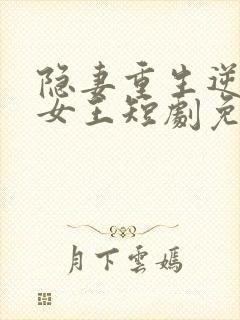 隐妻重生逆
女王短劇免
月下雲嫣